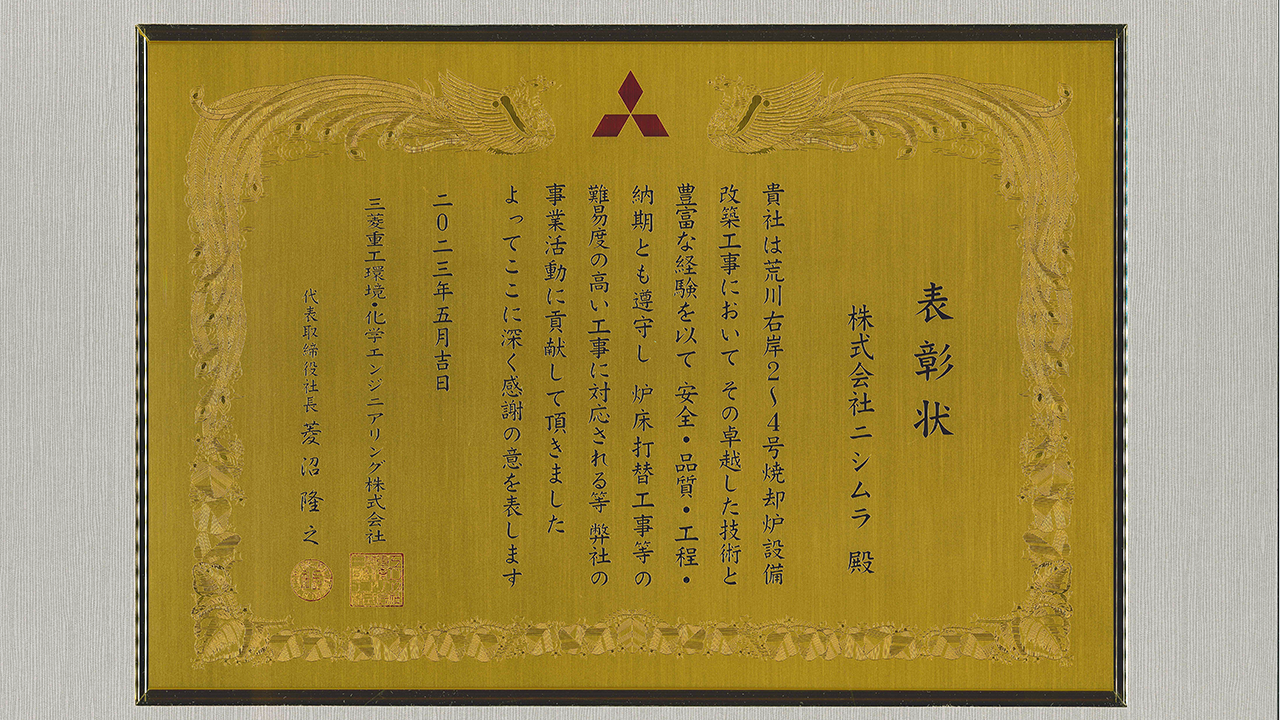 表彰状
株式会社ニシムラ 殿
貴社は荒川右岸2～4号焼却炉設備
改築工事において その卓越した技術と
豊富な経験を以て 安全・品質・工程・
納期とも遵守し 炉床打替工事等の
難易度の高い工事に対応される等 弊社の
事業活動に貢献して頂きました
よってここに深く感謝の意を表します
二〇二三年五月吉日
三菱重工環境・化学エンジニアリング株式会社
代表取締役社長 菱沼隆之